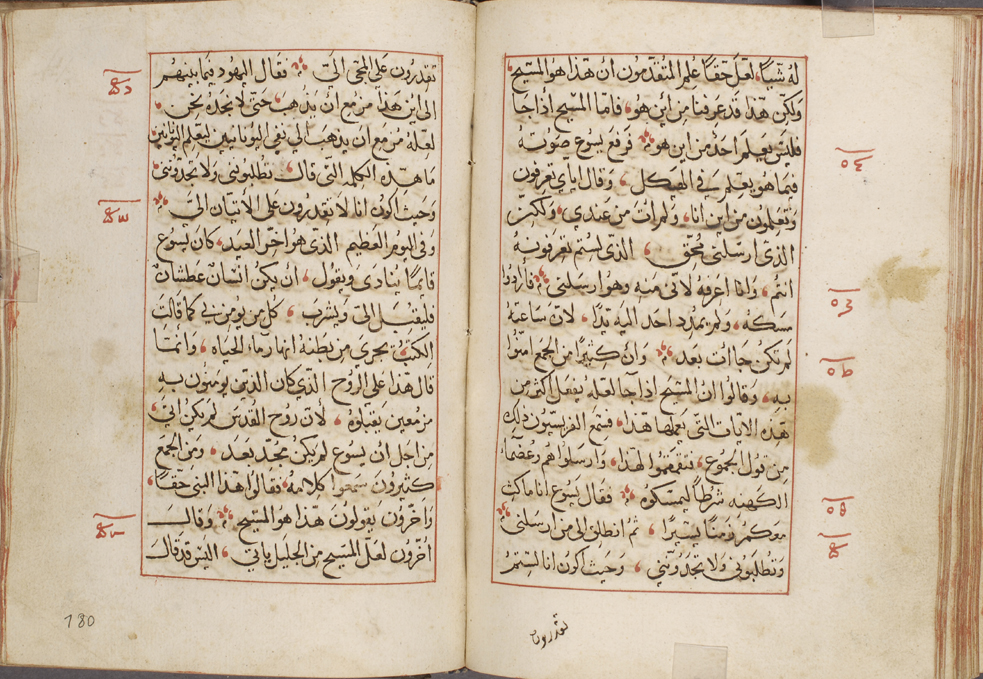 له شيئاً، لعل حقاً علم المتقدمون ان هذا هو المسيح
ولكن هذا قد عرفنا من اين هو، فاما المسيح اذا جا
فليس يعلم احد من اين هو، فرفع يسوع صوته
فيما هو يعلم في الهيكل، وقال اياي تعرفون
وتعلمون من اين انا، ولم ات من عندي، ولكن
الذي ارسلني محق، الذي لستم تعرفونه
انتم، وانا اعرفه لاني منه وهو ارسلني، فارادوا
مسكه، ولم يمدد احد اليه يداً، لان ساعته
لم تكن جاات بعد، وان كثيراً من الجمع امنوا
به، وقالوا ان المسيح اذا جا لعله يفعل اكثر من
هذه الايات التي يعملها هذا، فسمع الفريسيون ذلك
من قول الجموع، لهذا، وارسلوا هم وعضما
الكهنه شرطاً ليمسكوه، فقال يسوع انا ماكث
معكم زمناً يسيراً، ثم انطلق الى من ارسلني
وتطلبوني ولا تجدونني، وحيث اكون انا لستم
تقدرون
تقدرون على المجي الي، فقال اليهود فيما بينهم
الى اين هذا مزمع ان يذهب، حتى لا نجده نحن،
لعله مزمع ان يذهب الى اليونانيين ليعلم اليونانيين
ما هذه الكلمه التي قال، تطلبوني ولا تجدونني
وحيث اكون انا لا تقدرون على الاتيان الي
وفي اليوم العظيم الذي هو اخر العيد، كان يسوع
قايماً ينادي ويقول، ان يكن انسان عطشان
فليقبل الي ويشرب، كل من يومن بي كما قالت
الكتب، يجري من بطنه انهار ماء الحياه، وانما
قال هذا على الروح الذي كان الذين يومنون به
مزمعين يقبلوه، لان روح القدس لم يكن اتى،
من اجل ان يسوع لم يكن مجد بعد، ومن الجمع
كثيرون سمعوا كلامه، فقالوا هذا النبي حقاً،
واخرون يقولون هذا هو المسيح، وقال
اخرون لعل المسيح من الجليل ياتي، اليس قد قال
180